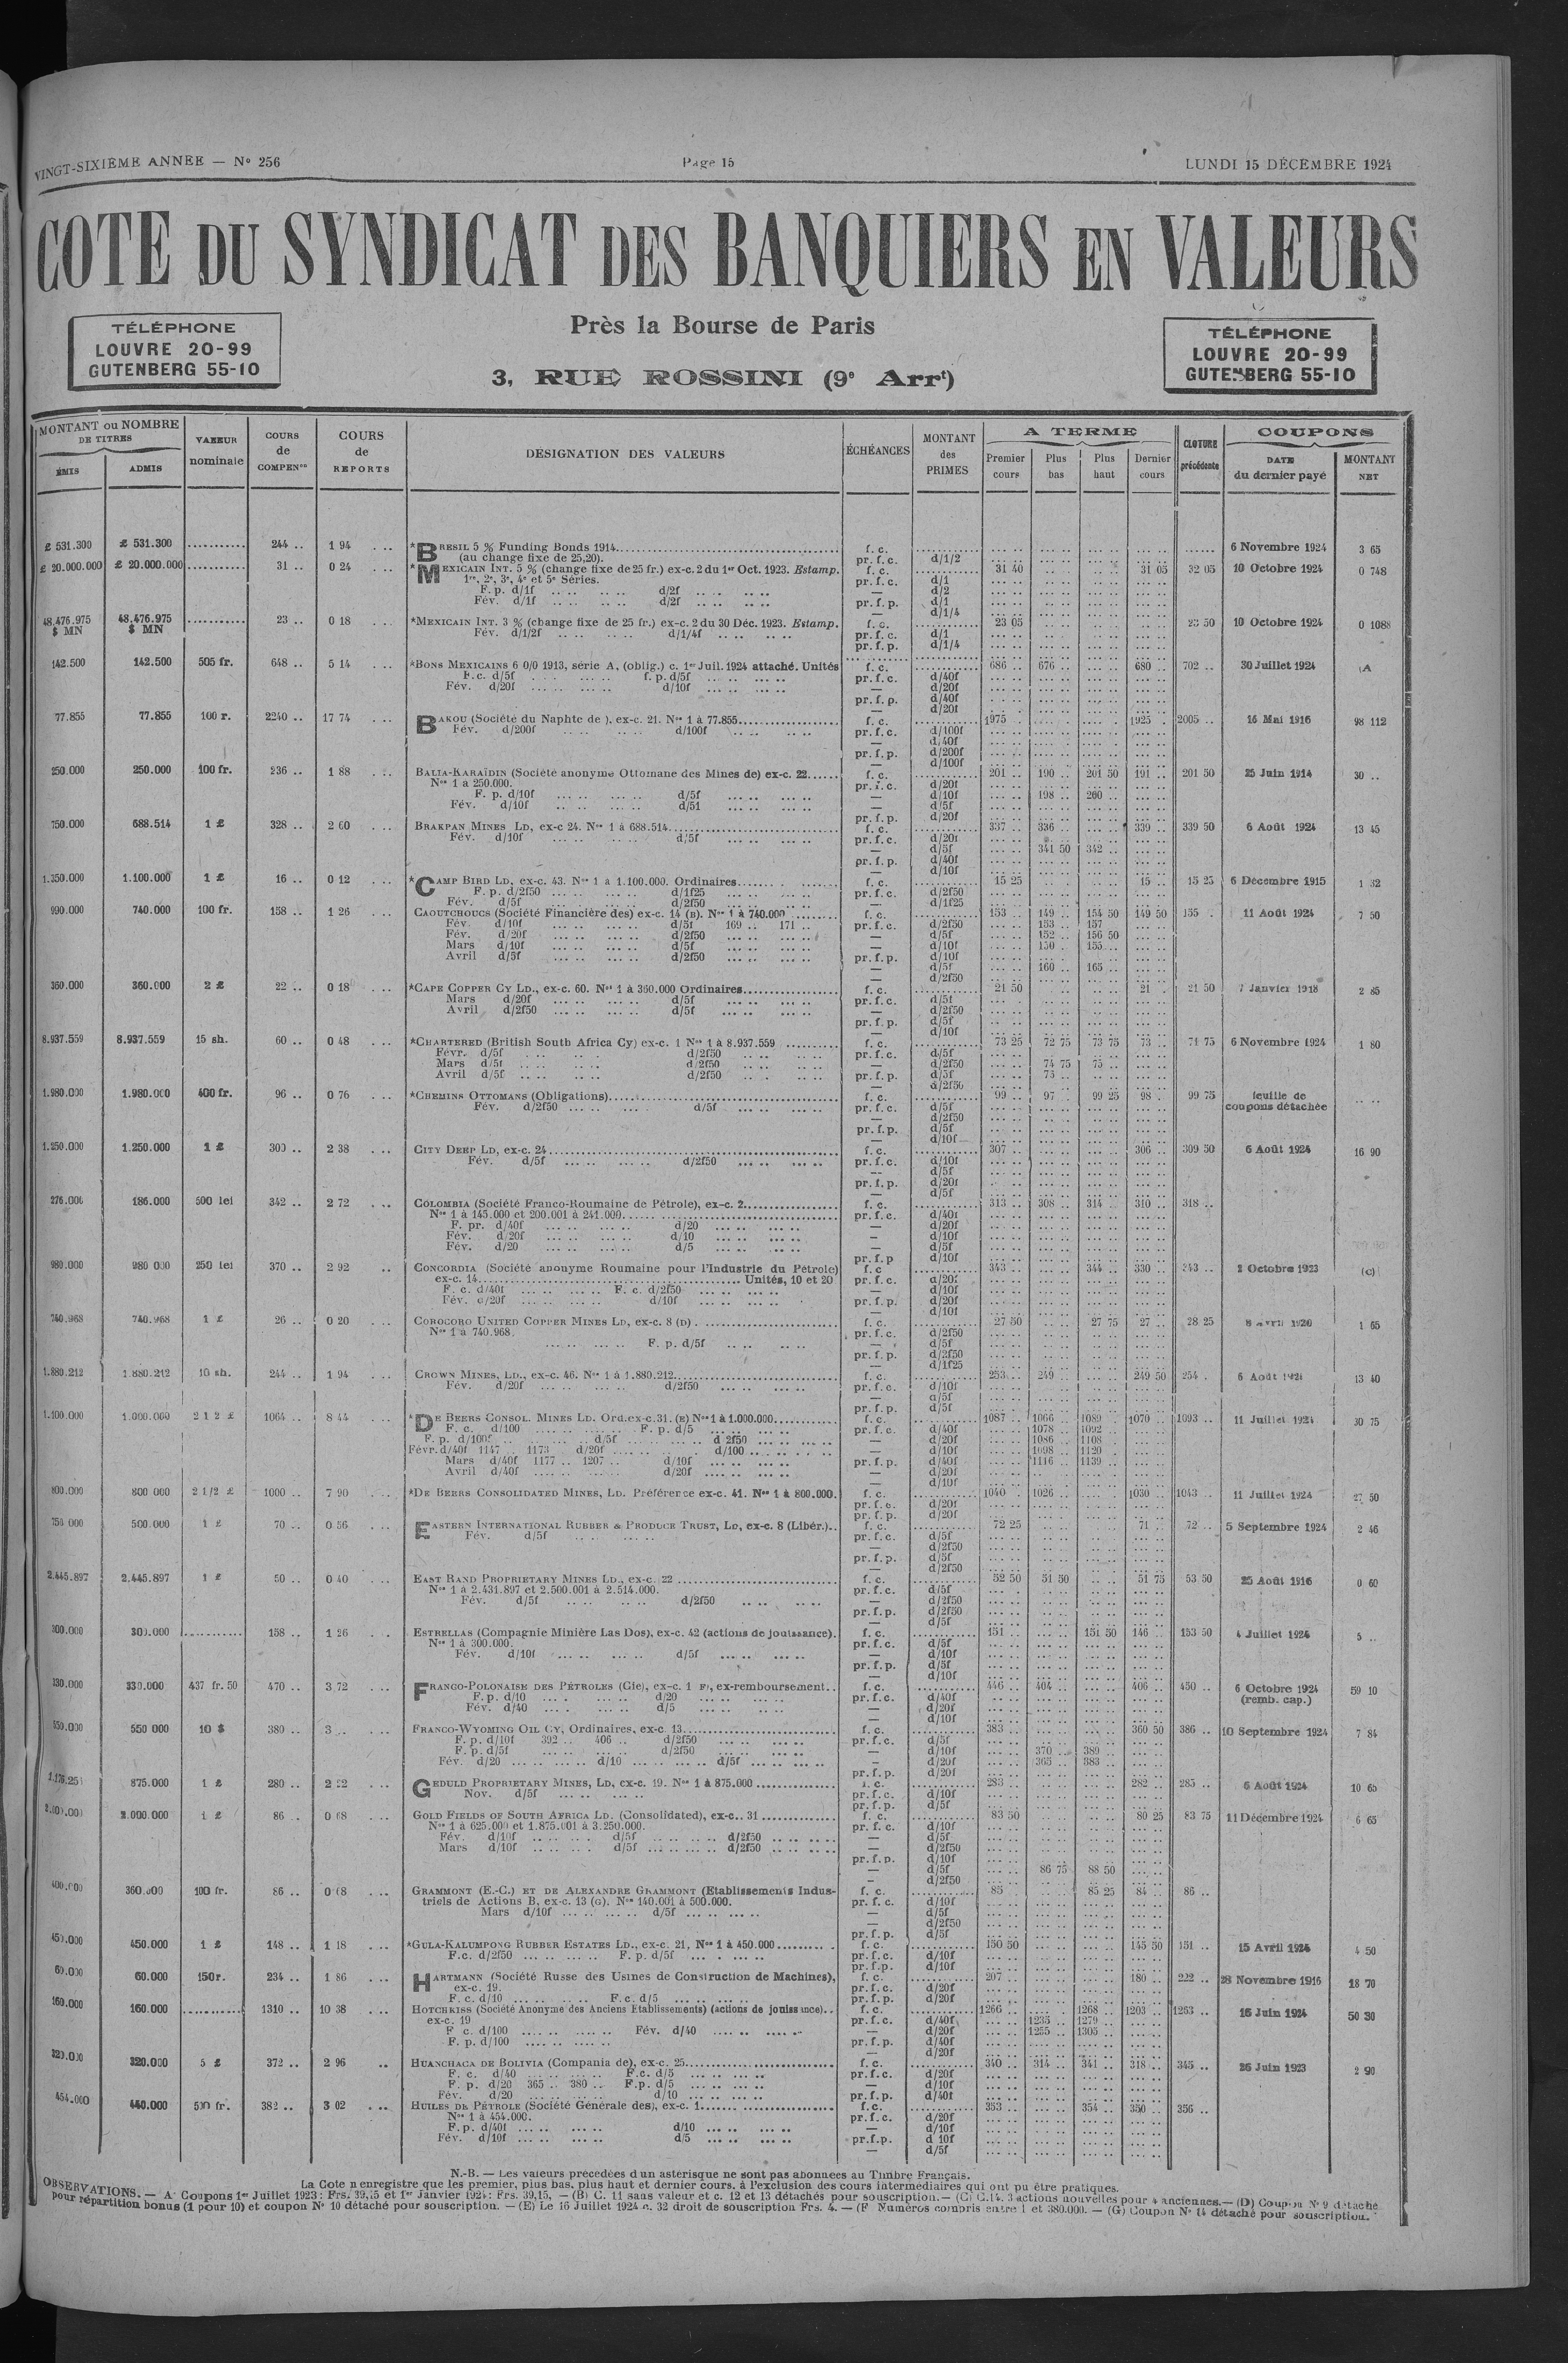 VINGT-SIXIÈME ANNÉE — N° 256
Page 15
LUNDI 15 DÉCEMBRE 1924
COTE DU SYNDICAT DES BANQUIERS EN VALEURS
Près la Bourse de Paris
3, RUE ROSSINI (9e Arrt)
TÉLÉPHONE
LOUVRE 20-99
GUTENBERG 55-10
TÉLÉPHONE
LOUVRE 20-99
GUTENBERG 55-10
MONTANT ou NOMBRE DE TITRES
ÉMIS
ADMIS
VALEUR nominale
COURS de COMPENon
COURS de REPORTS
DESIGNATION DES VALEURS
ÉCHÉANCES
MONTANT des PRIMES
A TERME
Premier cours
Plus bas
Plus haut
Dernier cours
CLOTURE précédente
COUPONS
DATE du dernier payé
MONTANT NET
£ 531.300 £ 531.300 .......... 244 .. 1 94 *BRESIL 5 % Funding Bonds 1914 f. c. 6 Novembre 1924 3 65
(au change fixe de 25,20). pr. f. c. d/1/2
£ 20.000.000 £ 20.000.000 .......... 31 .. 0 24 *MEXICAIN INT. 5 % (change fixe de 25 fr.) ex-c. 2 du 1er Oct. 1923. Estamp. f. c. 31 40 31 05 32 05 10 Octobre 1924 0 748
1re, 2e, 3e, 4e et 5e Séries. pr. f. c. d/1
F. p. d/1f d/2f — d/2
Fév. d/1f d/2f pr. f. p. d/1
— d/1/4
48.476.975 $ MN 48.476.975 $ MN .......... 23 .. 0 18 *MEXICAIN INT. 3 % (change fixe de 25 fr.) ex-c. 2 du 30 Déc. 1923. Estamp. f. c. 23 05 23 50 10 Octobre 1924 0 1088
Fév. d/1/2f d/1/4f pr. f. c. d/1
pr. f. p. d/1/4
142.500 142.500 505 fr. 648 .. 5 14 *BONS MEXICAINS 6 0/0 1913, série A, (oblig.) c. 1er Juil. 1924 attaché. Unités f. c. 686 .. 676 .. 680 .. 702 .. 30 Juillet 1924 (A
F.c. d/5f f. p. d/5f pr. f. c. d/40f
Fév. d/20f d/10f — d/20f
pr. f. p. d/40f
— d/20f
77.855 77.855 100 r. 2240 .. 17 74 BAKOU (Société du Naphte de ), ex-c. 21. Nos 1 à 77.855 f. c. 1975 1925 2005 .. 16 Mai 1916 98 112
Fév. d/200f d/100f pr. f. c. d/100f
— d/40f
pr. f. p. d/200f
— d/100f
250.000 250.000 100 fr. 236 .. 1 88 BALIA-KARAÏDIN (Société anonyme Ottomane des Mines de) ex-c. 22 f. c. 201 .. 190 .. 201 50 191 .. 201 50 25 Juin 1914 30 ..
Nos 1 à 250.000. pr. f. c. d/20f
F. p. d/10f d/5f — d/10f 198 .. 200 ..
Fév. d/10f d/5f — d/5f
pr. f. p. d/20f
750.000 688.514 1 £ 328 .. 2 60 BRAKPAN MINES LD, ex-c 24. Nos 1 à 688.514 f. c. 337 .. 336 .. 339 .. 339 50 6 Août 1924 13 45
Fév. d/10f d/5f pr. f. c. d/20f
— d/5f 341 50 342 ..
pr. f. p. d/40f
— d/10f
1.350.000 1.100.000 1 £ 16 .. 0 12 *CAMP BIRD LD, ex-c. 43. Nos 1 à 1.100.000. Ordinaires f. c. 15 25 15 .. 15 25 6 Décembre 1915 1 32
F. p. d/2f50 d/1f25 pr. f. c. d/2f50
Fév. d/5f d/2f50 — d/1f25
990.000 740.000 100 fr. 158 .. 1 26 CAOUTCHOUCS (Société Financière des) ex-c. 14 (B). Nos 1 à 740.000 f. c. 153 .. 149 .. 154 50 149 50 155 . 11 Août 1924 7 50
Fév. d/10f d/5f 169 .. 171 .. pr. f. c. d/2f50 153 .. 157
Fév. d/20f d/2f50 — d/5f 152 .. 156 50
Mars d/10f d/5f — d/10f 150 .. 155
Avril d/5f d/2f50 pr. f. p. d/10f
— d/5f 160 .. 165 ..
— d/2f50
360.000 360.000 2 £ 22 .. 0 18 *CAPE COPPER CY LD., ex-c. 60. Nos 1 à 360.000 Ordinaires f. c. 21 50 21 21 50 7 Janvier 1918 2 85
Mars d/20f d/5f pr. f. c. d/5f
Avril d/2f50 d/5f — d/2f50
pr. f. p. d/5f
— d/10f
8.937.559 8.937.559 15 sh. 60 .. 0 48 *CHARTERED (British South Africa Cy) ex-c. 1 Nos 1 à 8.937.559 f. c. 73 25 72 75 73 75 73 .. 71 75 6 Novembre 1924 1 80
Févr. d/5f d/2f50 pr. f. c. d/5f
Mars d/5f d/2f50 — d/2f50 74 75 75 ..
Avril d/5f d/2f50 pr. f. p. d/5f 75 ..
— d/2f50
1.980.000 1.980.000 400 fr. 96 .. 0 76 *CHEMINS OTTOMANS (Obligations) f. c. 99 .. 97 .. 99 25 98 . 99 75 feuille de coupons détachée
Fév. d/2f50 d/5f pr. f. c. d/5f
— d/2f50
pr. f. p. d/5f
— d/10f
1.250.000 1.250.000 1 £ 300 .. 2 38 CITY DEEP LD, ex-c. 24 f. c. 307 306 .. 309 50 6 Août 1924 16 90
Fév. d/5f d/2f50 pr. f. c. d/10f
— d/5f
pr. f. p. d/20f
— d/5f
276.000 186.000 500 lei 342 .. 2 72 COLOMBIA (Société Franco-Roumaine de Pétrole), ex-c. 2 f. c. 313 .. 308 .. 314 310 .. 318 ..
Nos 1 à 145.000 et 200.001 à 241.000 pr. f. c. d/40f
F. pr. d/40f d/20 — d/20f
Fév. d/20f d/10 — d/10f
Fév. d/20 d/5 — d/5f
pr. f. p d/10f
980.000 980 000 250 lei 370 .. 2 92 CONCORDIA (Société anonyme Roumaine pour l'Industrie du Pétrole) f. c 343 344 .. 330 .. 343 .. 2 Octobre 1923 (C)
ex-c. 14 Unités, 10 et 20 pr. f. c. d/20f
F. c. d/40f F. c. d/2f50 — d/10f
Fév. d/20f d/10f pr. f. p. d/20f
— d/10f
740.968 740.968 1 £ 26 .. 0 20 COROCORO UNITED COPPER MINES LD, ex-c. 8 (D) f. c. 27 50 27 75 27 .. 28 25 1 65
Nos 1 à 740.968. pr. f. c. d/2f50
F. p. d/5f — d/5f
pr. f. p. d/2f50
— d/1f25
1.880.212 1.880.212 10 sh. 244 .. 1 94 CROWN MINES, LD., ex-c. 46. Nos 1 à 1.880.212 f. c. 253 249 .. 249 50 254 . 6 Août 13 40
Fév. d/20f d/2f50 pr. f. c. d/10f
— d/5f
pr. f. p. d/5f
1.100.000 1.000.000 2 1 2 £ 1064 .. 8 44 *DE BEERS CONSOL. MINES LD. Ord. ex-c. 31. (E) Nos 1 à 1.000.000 f. c. 1087 1066 1089 1070 1093 .. 11 Juillet 1924 30 75
F. c. d/100 F. p. d/5 pr. f. c. d/40f 1078 .. 1092 ..
F. p. d/100f d/5f d 2f50 — d/20f 1086 .. 1108
Févr. d/40f 1147 .. 1173 . d/20f d/100 — d/10f 1098 .. 1120
Mars d/40f 1177 .. 1207 .. d/10f pr. f. p. d/40f 1116 .. 1139
Avril d/40f d/20f — d/20f
— d/10f
800.000 800 000 2 1/2 £ 1000 .. 7 90 *DE BEERS CONSOLIDATED MINES, LD. Préférence ex-c. 41. Nos 1 à 800.000. f. c. 1040 1026 1030 1043 .. 11 Juillet 1924 27 50
pr. f. c. d/20f
pr. f. p. d/20f
750 000 500.000 1 £ 70 .. 0 56 EASTERN INTERNATIONAL RUBBER & PRODUCE TRUST, LD, ex-c. 8 (Libér.) f. c. 72 25 71 72 .. 5 Septembre 1924 2 46
Fév. d/5f pr. f. c. d/5f
— d/2f50
pr. f. p. d/5f
— d/2f50
2.445.897 2.445.897 1 £ 50 .. 0 40 EAST RAND PROPRIETARY MINES LD., ex-c. 22 f. c. 52 50 51 50 51 75 53 50 25 Août 1916 0 60
Nos 1 à 2.431.897 et 2.500.001 à 2.514.000. pr. f. c. d/5f
Fév. d/5f d/2f50 — d/2f50
pr. f. p. d/2f50
— d/5f
300.000 300.000 .......... 158 .. 1 26 ESTRELLAS (Compagnie Minière Las Dos), ex-c. 42 (actions de jouissance). f. c. 151 151 50 146 .. 153 50 4 Juillet 1924 5 ..
Nos 1 à 300.000. pr. f. c. d/5f
Fév. d/10f d/5f — d/10f
pr. f. p. d/5f
— d/10f
330.000 330.000 437 fr. 50 470 .. 3 72 FRANCO-POLONAISE DES PÉTROLES (Cie), ex-c. 1 F), ex-remboursement f. c. 446 .. 404 .. 406 .. 450 .. 6 Octobre 1924 (remb. cap.) 59 10
F. p. d/10 d/20 pr. f. c. d/40f
Fév. d/40 d/5 — d/20f
— d/10f
550.000 550 000 10 $ 380 .. 3 .. FRANCO-WYOMING OIL CY, Ordinaires, ex-c. 13 f. c. 383 360 50 386 .. 10 Septembre 1924 7 84
F. p. d/10f 392 .. 406 .. d/2f50 pr. f. c. d/5f
F. p. d/5f d/2f50 — d/10f 370 389
Fév. d/20 d/10 d/5f — d/20f 365 .. 383 ..
pr. f. p. d/20f
875.000 1 £ 280 .. 2 22 GEDULD PROPRIETARY MINES, LD, ex-c. 19. Nos 1 à 875.000 f. c. 283 .. 282 .. 285 .. 6 Août 1924 10 65
Nov. d/5f pr. f. c. d/10f
pr. f. p. d/5f
2.000.000 1 £ 86 .. 0 68 GOLD FIELDS OF SOUTH AFRICA LD. (Consolidated), ex-c.. 31 f. c. 83 50 80 25 83 75 11 Décembre 1924 6 65
Nos 1 à 625.000 et 1.875.001 à 3.250.000. pr. f. c. d/10f
Fév. d/10f d/5f d/2f50 — d/5f
Mars d/10f d/5f d/2f50 — d/2f50
pr. f. p. d/10f
— d/5f 86 75 88 50
— d/2f50
400.000 360.000 100 fr. 86 .. 0 68 GRAMMONT (E.-C.) ET DE ALEXANDRE GRAMMONT (Etablissements Indus- f. c. 85 85 25 84 .. 86 ..
triels de Actions B, ex-c. 13 (G). Nos 140.001 à 500.000. pr. f. c. d/10f
Mars d/10f d/5f — d/5f
— d/2f50
pr. f. p. d/5f
450.000 450.000 1 £ 148 .. 1 18 *GULA-KALUMPONG RUBBER ESTATES LD., ex-c. 21, Nos 1 à 450.000 f. c. 150 50 145 50 151 .. 15 Avril 1924 4 50
F.c. d/2f50 F. p. d/5f pr. f. c. d/10f
pr. f. p. d/10f
60.000 60.000 150 r. 234 .. 1 86 HARTMANN (Société Russe des Usines de Construction de Machines), f. c. 207 180 .. 222 .. 28 Novembre 1916 18 70
ex-c. 19. pr. f. c. d/20f
F. c. d/10 F. c. d/5 pr. f. p. d/20f
160.000 160.000 .......... 1310 .. 10 38 HOTCHKISS (Société Anonyme des Anciens Etablissements) (actions de jouissance) f. c. 1266 1268 1203 1263 .. 16 Juin 1924 50 30
ex-c. 19 pr. f. c. d/40f 1235 1279
F c. d/100 Fév. d/40 — d/20f 1255 1305
F. p. d/100 pr. f. p. d/40f
— d/20f
320.000 320.000 5 £ 372 .. 2 96 HUANCHACA DE BOLIVIA (Compania de), ex-c. 25 f. c. 340 .. 314 .. 341 .. 318 .. 345 .. 26 Juin 1923 2 90
F. c. d/40 F.c. d/5 pr. f. c. d/20f
F. p. d/20 365 .. 380 .. F.p. d/5 — d/10f
Fév. d/20 d/10 pr. f. p. d/40f
454.000 440.000 500 fr. 382 .. 3 02 HUILES DE PÉTROLE (Société Générale des), ex-c. 1 f. c. 353 354 .. 350 .. 356 ..
Nos 1 à 454.000. pr. f. c. d/20f
F. p. d/40f d/10 — d/10f
Fév. d/10f d/5 pr. f. p. d 10f
— d/5f
N.-B. — Les valeurs précédées d'un astérisque ne sont pas abonnées au Timbre Français.
La Cote n'enregistre que les premier, plus bas, plus haut et dernier cours, à l'exclusion des cours intermédiaires qui ont pu être pratiqués.
OBSERVATIONS. — A Coupons 1er Juillet 1923 : Frs. 39,15 et 1er Janvier 1924 : Frs. 39,15. — (B) C. 11 sans valeur et c. 12 et 13 détachés pour souscription. — (C) C. 14. 3 actions nouvelles pour 4 anciennes. — (D) Coupon N° 9 détaché
pour répartition bonus (1 pour 10) et coupon N° 10 détaché pour souscription. — (E) Le 16 Juillet 1924 c. 32 droit de souscription Frs. 4. — (F Numéros compris entre 1 et 380.000. — (G) Coupon N° 14 détaché pour souscription.